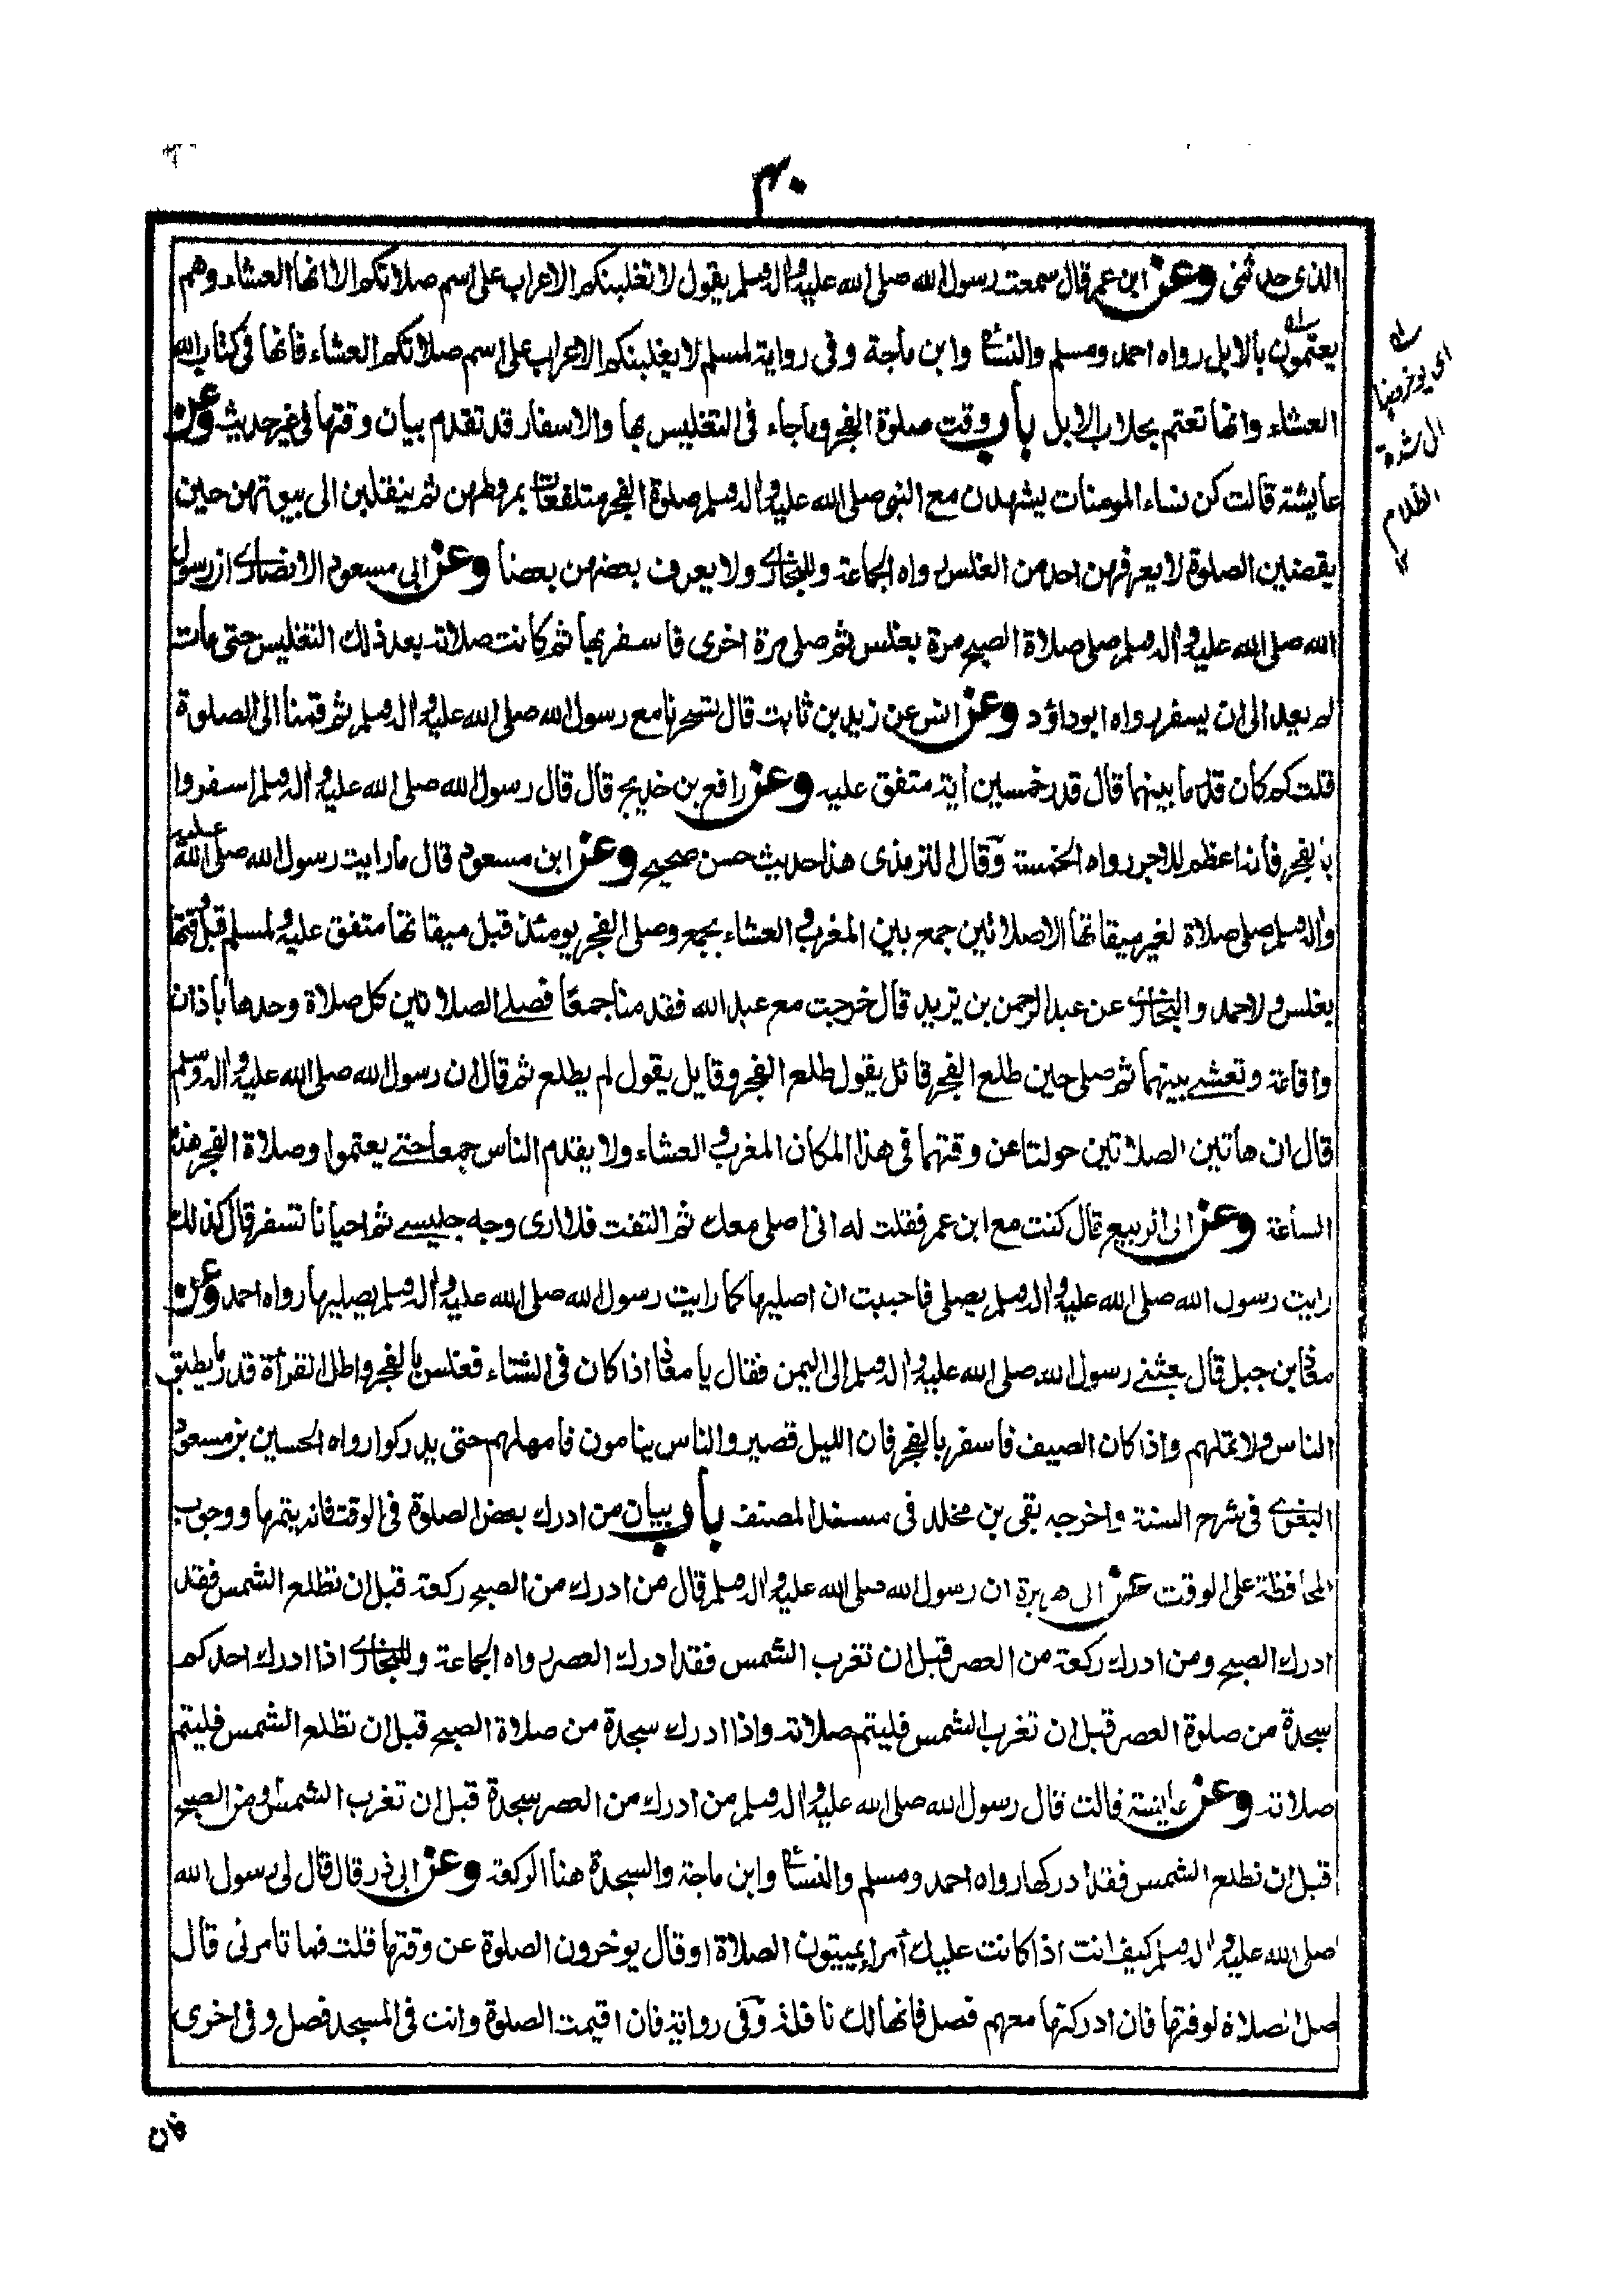 ۴۰
الذى حدثنى وعن ابن عمر قال سمعت رسول الله صلى الله عليه واله وسلم يقول لا تغلبنكم الاعراب على اسم صلاتكم الا انها العشاء وهم
يعتمون بالابل رواه احمد ومسلم والنسائ وابن ماجة وفى رواية لمسلم لا يغلبنكم الاعراب على اسم صلاتكم العشاء فانها فى كتاب الله
العشاء وانها تعتم بحلاب الابل باب وقت صلوة الفجر وماجاء فى التغليس بها والاسفار قد تقدم بيان وقتها فى غير حديث وعن
عايشة قالت كن نساء المومنات يشهدن مع النبى صلى الله عليه واله وسلم صلوة الفجر متلفعات بمروطهن ثم ينقلبن الى بيوتهن حين
يقضين الصلوة لا يعرفهن احد من الغلس رواه الجماعة وللبخارى ولا يعرف بعضهن بعضا وعن ابى مسعود الانصارى ان رسول
الله صلى الله عليه واله وسلم صلى صلاة الصبح مرة بغلس ثم صلى مرة اخرى فاسفر بها ثم كانت صلاته بعد ذلك التغليس حتى مات
لم يعد الى ان يسفر رواه ابوداؤد وعن انس عن زيد بن ثابت قال تسحرنا مع رسول الله صلى الله عليه واله وسلم ثم قمنا الى الصلوة
قلت كم كان قدر ما بينهما قال قدر خمسين أية متفق عليه وعن رافع بن خديج قال قال رسول الله صلى الله عليه واله وسلم اسفروا
بالفجر فانه اعظم للاجر رواه الخمسة وقال الترمذى هذا حديث حسن صحيح وعن ابن مسعود قال ما رايت رسول الله صلى الله عليه
واله وسلم صلى صلاة لغير ميقاتها الا صلاتين جمع بين المغرب والعشاء بجمع وصلى الفجر يومئذ قبل ميقاتها متفق عليه ولمسلم قبل وقتها
بغلس ولاحمد والبخارى عن عبد الرحمن بن يزيد قال خرجت مع عبد الله فقدمنا جمعا فصلى الصلاتين كل صلاة وحدها باذان
واقامة وتعشى بينهما ثم صلى حين طلع الفجر قائل يقول طلع الفجر وقايل يقول لم يطلع ثم قال ان رسول الله صلى الله عليه واله وسلم
قال ان هاتين الصلاتين حولتا عن وقتهما فى هذا المكان المغرب والعشاء ولا يقدم الناس جمعا حتى يعتموا وصلاة الفجر هذه
الساعة وعن ابى الربيع قال كنت مع ابن عمر فقلت له انى اصلى معك ثم التفت فلا ارى وجه جليسى ثم احيانا تسفر قال كذلك
رايت رسول الله صلى الله عليه واله وسلم يصلى فاحببت ان اصليها كما رايت رسول الله صلى الله عليه واله وسلم يصليها رواه احمد وعن
معاذ بن جبل قال بعثنى رسول الله صلى الله عليه واله وسلم الى اليمن فقال يا معاذ اذا كان فى الشتاء فغلس بالفجر واطل القرأة قدر ما يطيق
الناس ولا تملهم واذا كان الصيف فاسفر بالفجر فان الليل قصير والناس ينامون فامهلهم حتى يدركوا رواه الحسين بن مسعود
البغوى فى شرح السنة واخرجه بقى بن مخلد فى مسنده المصنف باب بيان من ادرك بعض الصلوة فى الوقت فانه يتمها ووجوب
المحافظة على الوقت عن ابى هريرة ان رسول الله صلى الله عليه واله وسلم قال من ادرك من الصبح ركعة قبل ان تطلع الشمس فقد
ادرك الصبح ومن ادرك ركعة من العصر قبل ان تغرب الشمس فقد ادرك العصر رواه الجماعة وللبخارى اذا ادرك احدكم
سجدة من صلوة العصر قبل ان تغرب الشمس فليتم صلاته واذا ادرك سجدة من صلاة الصبح قبل ان تطلع الشمس فليتم
صلاته وعن عايشة قالت قال رسول الله صلى الله عليه واله وسلم من ادرك من العصر سجدة قبل ان تغرب الشمس او من الصبح
قبل ان تطلع الشمس فقد ادركها رواه احمد ومسلم والنسائ وابن ماجة والسجدة هنا الركعة وعن ابى ذر قال قال لى رسول الله
صلى الله عليه واله وسلم كيف انت اذا كانت عليك أمراء يميتون الصلاة او قال يوخرون الصلوة عن وقتها قلت فما تامرنى قال
صل الصلاة لوقتها فان ادركتها معهم فصل فانها لك نافلة وفى رواية فان اقيمت الصلوة وانت فى المسجد فصل وفى اخرى
اى يوخرونها
الى شدة
الظلام
١٢
فان